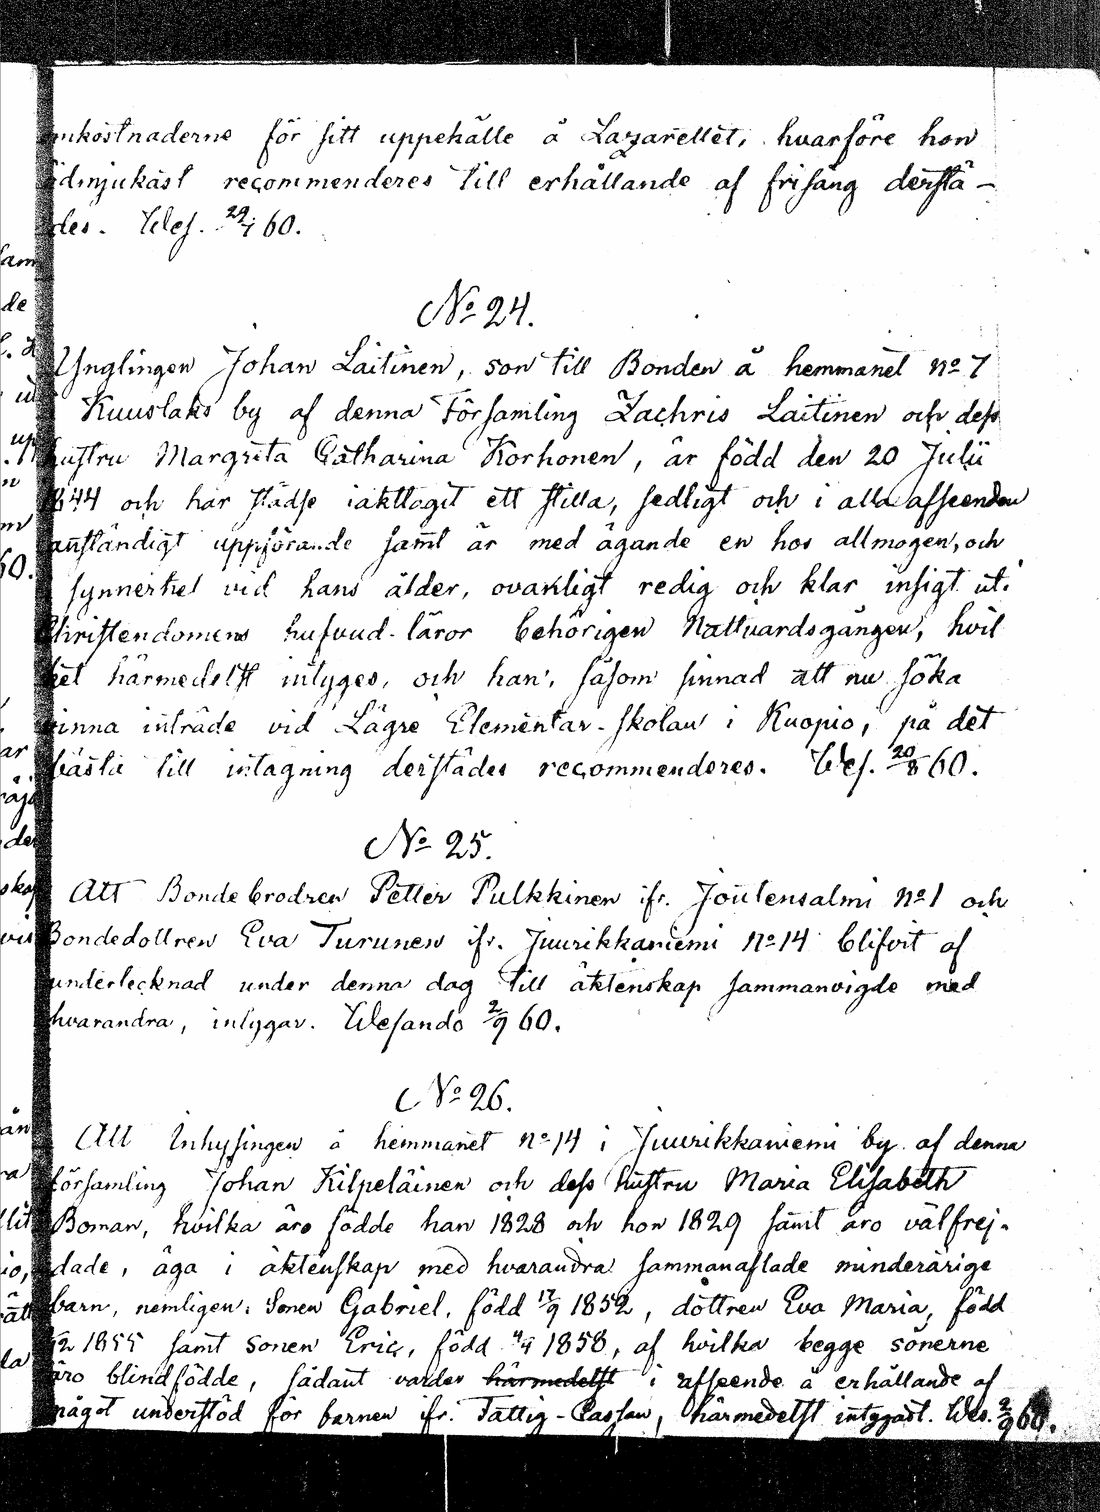 omkostnaderne för sitt uppehälle å Lazarettet, hvarföre hon
ödmjukast recommenderes till erhållande af frisäng derstä-
des. Wes. 29/7 60.
No 24.
Ynglingen Johan Laitinen, son till Bonden å hemmanet no 7
Kuuslaks by af denna Församling Zachris Laitinen och dess
hustru Margreta Catharina Korhonen, är född den 20 Julii
1844 och har städse iakttagit ett stilla, sedligt och i alla afseenden
anständigt uppförande samt är med ägande en hos allmogen, och
synnerhet vid hans ålder, ovanligt redig och klar insigt uti
Christendomens hufvud-läror behörigen Nattvardsgången, hvil
ket härmedelst intyges, och han, såsom sinnad att nu söka
vinna inträde vid Lägre Elementar-skolan i Kuopio, på det
bästa till intagning derstädes recommenderes. Wes. 20/8 60.
No 25.
Att Bondebrodren Petter Pulkkinen ifr. Joutensalmi no 1 och
Bondedottren Eva Turunen ifr. Juurikkaniemi no 14 blifvit af
undertecknad under denna dag till äktenskap sammanvigde med
hvarandra, intygar. Wesando 2/9 60.
No 26.
Att Inhysingen å hemmanet no 14 i Juurikkaniemi by af denna
församling Johan Kilpeläinen och dess hustru Maria Elisabeth
Boman, hvilka äro födde han 1828 och hon 1829 samt äro välfrej-
dade, äga i äktenskap med hvarandra sammanaflade minderårige
barn, nemligen: Sonen Gabriel, född 17/9 1852, dottren Eva Maria, född
1855 samt sonen Eric, född 1858, af hvilka begge sönerne
äro blindfödde, sådant varder härmedelst i afseende å erhållande af
något understöd för barnen ifr. Fattig-Cassan, härmedelst intygadt. Wes. 2/9 60.